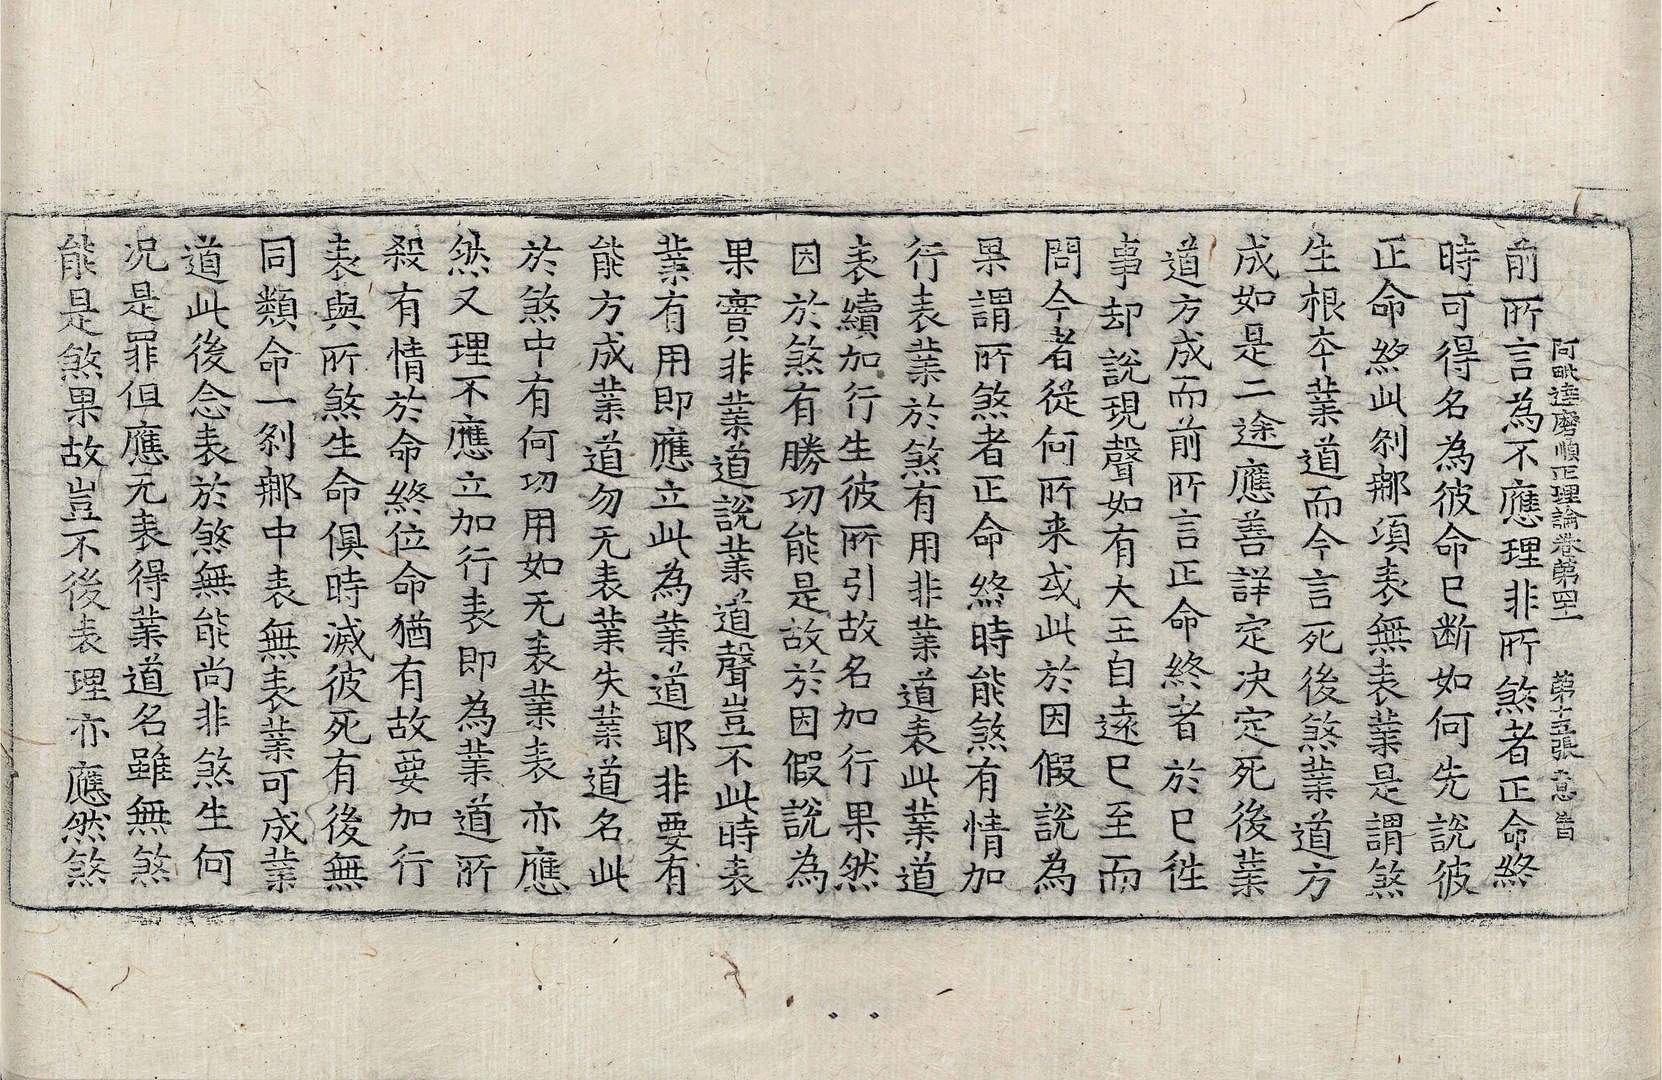 阿毗達磨順正理論卷第四十一 第十五張 意昔
前所言為不應理非所煞者正命終
時可得名為彼命已断如何先說彼
正命終此刹那頃表無表業是謂煞
生根夲業道而今言死後煞業道方
成如是二途應善詳定决定死後業
道方成而前所言正命終者於已徃
事却說現聲如有大王自遠已至而
問今者從何所来或此於因假說為
果謂所煞者正命終時能煞有情加
行表業於煞有用非業道表此業道
表續加行生彼所引故名加行果然
因於煞有勝功能是故於因假說為
果實非業道說業道聲豈不此時表
業有用即應立此為業道耶非要有
能方成業道勿无表業失業道名此
於煞中有何功用如无表業表亦應
然又理不應立加行表即為業道所
殺有情於命終位命猶有故要加行
表與所煞生命俱時滅彼死有後無
同類命一刹那中表無表業可成業
道此後念表於煞無能尚非煞生何
况是罪但應无表得業道名雖無煞
能是煞果故豈不後表理亦應然煞